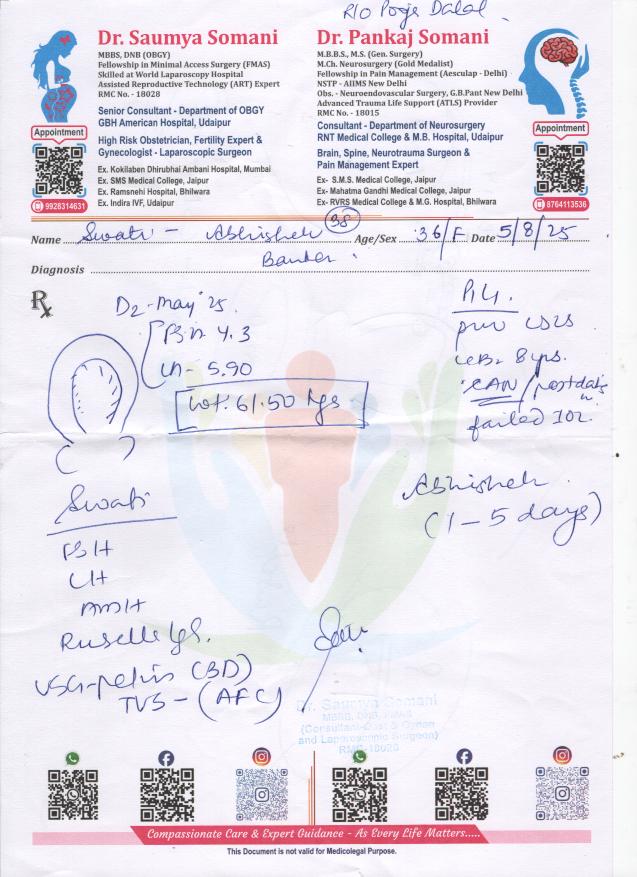 R/O Pooja Dalal
Dr. Saumya Somani
MBBS, DNB (OBGY)
Fellowship in Minimal Access Surgery (FMAS)
Skilled at World Laparoscopy Hospital
Assisted Reproductive Technology (ART) Expert
RMC No. - 18028
Senior Consultant - Department of OBGY
GBH American Hospital, Udaipur
High Risk Obstetrician, Fertility Expert &
Gynecologist - Laparoscopic Surgeon
Ex. Kokilaben Dhirubhai Ambani Hospital, Mumbai
Ex. SMS Medical College, Jaipur
Ex. Ramsnehi Hospital, Bhilwara
Ex. Indira IVF, Udaipur
Appointment
9928314631
Dr. Pankaj Somani
M.B.B.S., M.S. (Gen. Surgery)
M.Ch. Neurosurgery (Gold Medalist)
Fellowship in Pain Management (Aesculap - Delhi)
NSTP - AIIMS New Delhi
Obs. - Neuroendovascular Surgery, G.B.Pant New Delhi
Advanced Trauma Life Support (ATLS) Provider
RMC No. - 18015
Consultant - Department of Neurosurgery
RNT Medical College & M.B. Hospital, Udaipur
Brain, Spine, Neurotrauma Surgeon &
Pain Management Expert
Ex- S.M.S. Medical College, Jaipur
Ex- Mahatma Gandhi Medical College, Jaipur
Ex- RVRS Medical College & M.G. Hospital, Bhilwara
Appointment
8764113536
Name Swati - Abhishek 38 Age/Sex 36/F Date 5/8/25
Diagnosis
Rx
D2 - May '25.
FSH 4.3
LH - 5.90
Wt. 61.50 kgs
P1L1.
prev LSCS
LCB - 8 yrs.
CAN / postdates
failed IOL
Swati
FSH
LH
AMH
Abhishek
(1-5 days)
USG - pelvis (3D)
TVS - (AFC)
Dr. Saumya Somani
MBBS, DNB, FMAS
(Consultant-Obst & Gynae
and Laparoscopic Surgeon)
RMC-18028
Compassionate Care & Expert Guidance - As Every Life Matters.....
This Document is not valid for Medicolegal Purpose.